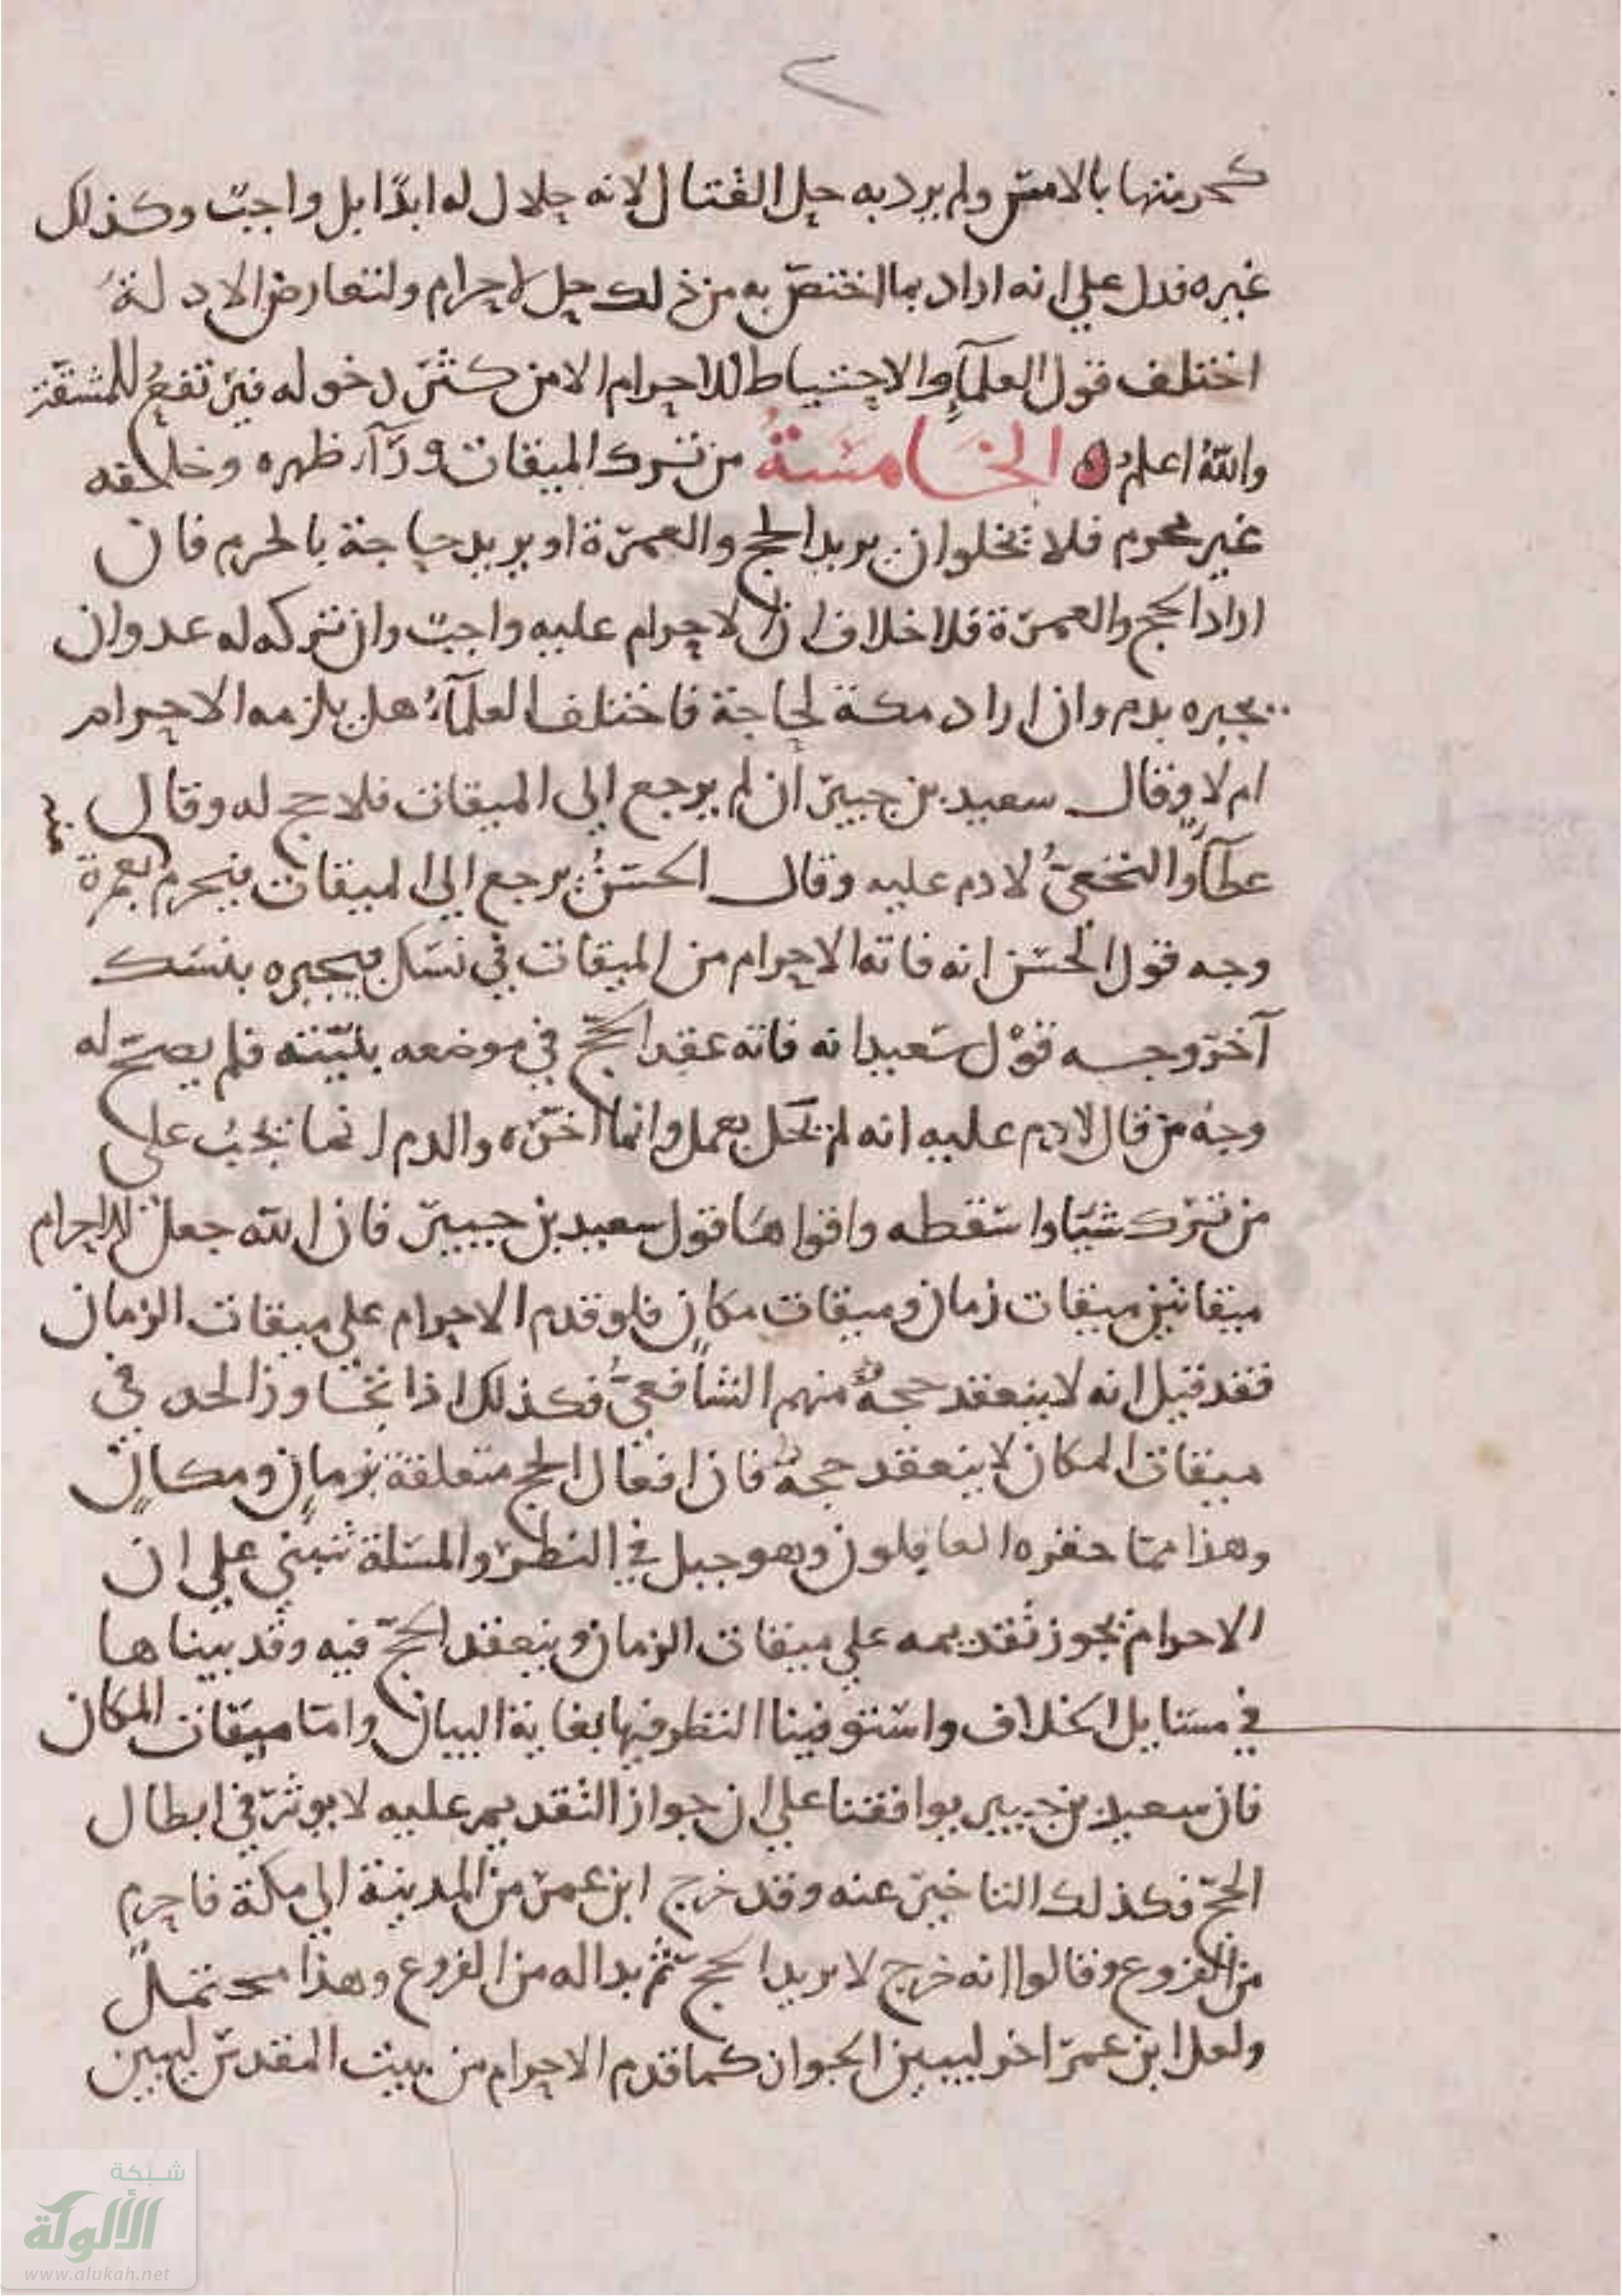 ٢
كحرمتها بالامس ولم يرد به حل القتال لانه حلال له ابدًا بل واجبٌ وكذلك
غيره فدل علي انه اراد بما اختص به من ذلك حل الاحرام ولتعارض الادلة
اختلف قول العلمآء والاحتياط للاحرام الا من كثر دخوله فيرتفع للمشقة
والله اعلم ه الخامسة من ترك الميقات ورآء ظهره وخلفه
غير محرم فلا تخلوا ان يريد الحج والعمرة او يريد حاجة بالحرم فان
اراد الحج والعمرة فلا خلاف ان الاحرام عليه واجبٌ وان تركه له عدوان
يجبره بدم وان اراد مكة لحاجة فاختلف العلمآء هل يلزمه الاحرام
ام لا وقال سعيد بن جبير ان لم يرجع إلى الميقات فلا حج له وقال
عطآء والنخعيُّ لا دم عليه وقال الحسنُ يرجع إلى الميقات فيحرم بعمرة
وجه قول الحسن انه فاته الاحرام من الميقات في نسك فيجبره بنسك
آخر وجه قول سعيد انه فاته عقد الحجّ في موضعه بنيّته فلم يصحّ له
وجه من قال لا دم عليه انه لم يخل بعمل وانما اخّره والدم انما يجبُ على
من ترك شيئا واسقطه واقواها قول سعيد بن جبير فان الله جعل للاحرام
ميقاتين ميقات زمان وميقات مكانٍ فلو قدم الاحرام على ميقات الزمان
فقد قيل انه لا ينعقد حجهُ منهم الشافعيُّ فكذلك اذا تجاوز الحد في
ميقات المكان لا ينعقد حجهُ فان افعال الحج متعلقة بزمانٍ ومكانٍ
وهذا مما حقره الغافلون وهو جبل في النظر والمسلة تنبني على ان
الاحرام يجوز تقديمه علي ميقات الزمان وينعقد الحجّ فيه وقد بيّناها
في مسايل الخلاف واستوفينا النظر فيها بغاية البيان واما ميقات المكان
فان سعيد بن جبير يوافقنا علي ان جواز التقديم عليه لا يوثر في ابطال
الحجّ فكذلك التاخير عنه وقد خرج ابن عمر من المدينة الي مكة فاحرم
من الفروع وقالوا انه خرج لا يريد الحجّ ثم بدا له من الفروع وهذا محتملٌ
ولعل ابن عمر اخر ليبين الجواز كما قدم الاحرام من بيت المقدس ليبين
شبكة
الألوكة
www.alukah.net